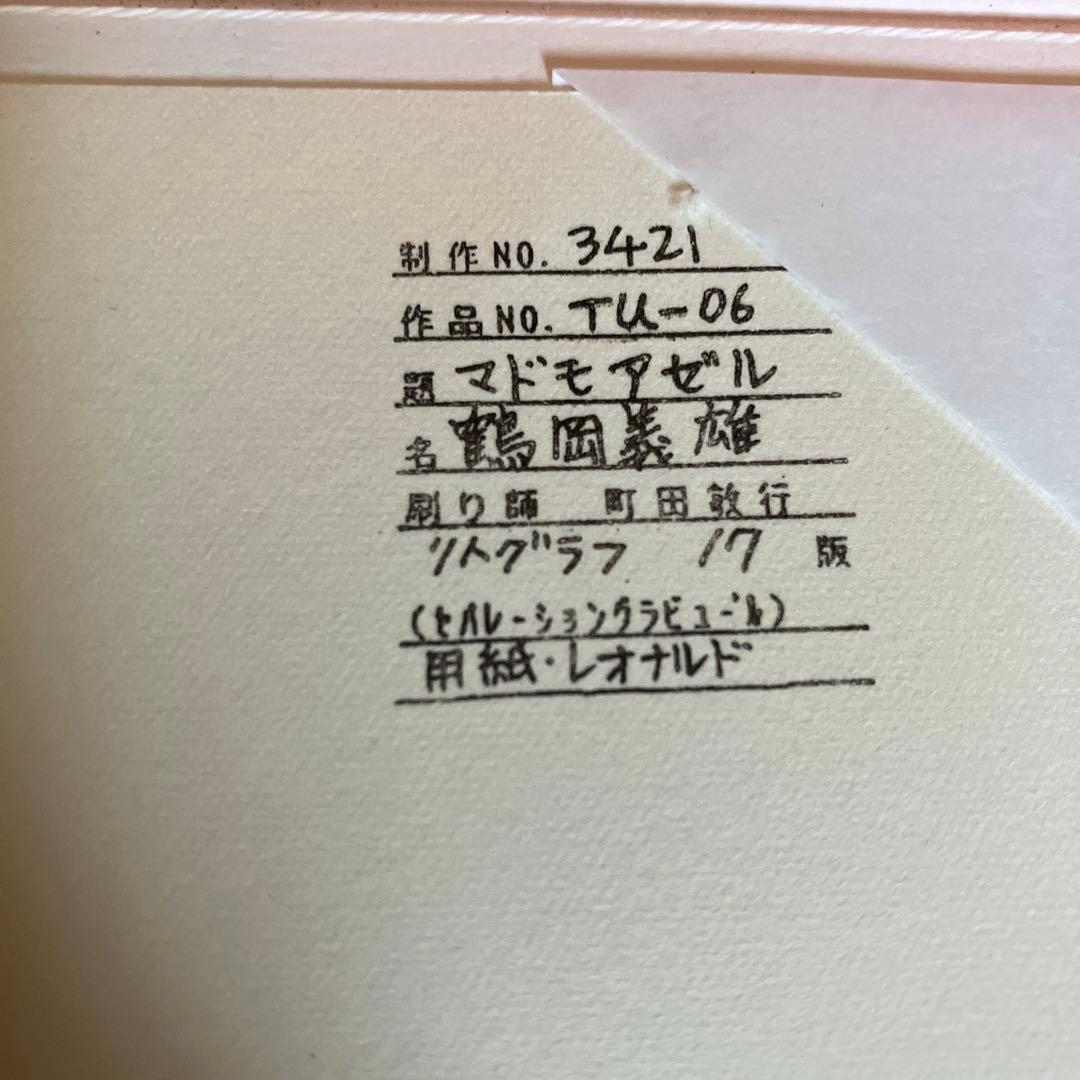 制作NO. 3421
作品NO. TU-06
題 マドモアゼル
名 鶴岡義雄
刷り師 町田敏行
リトグラフ 17 版
(セパレーショングラビュール)
用紙・レオナルド